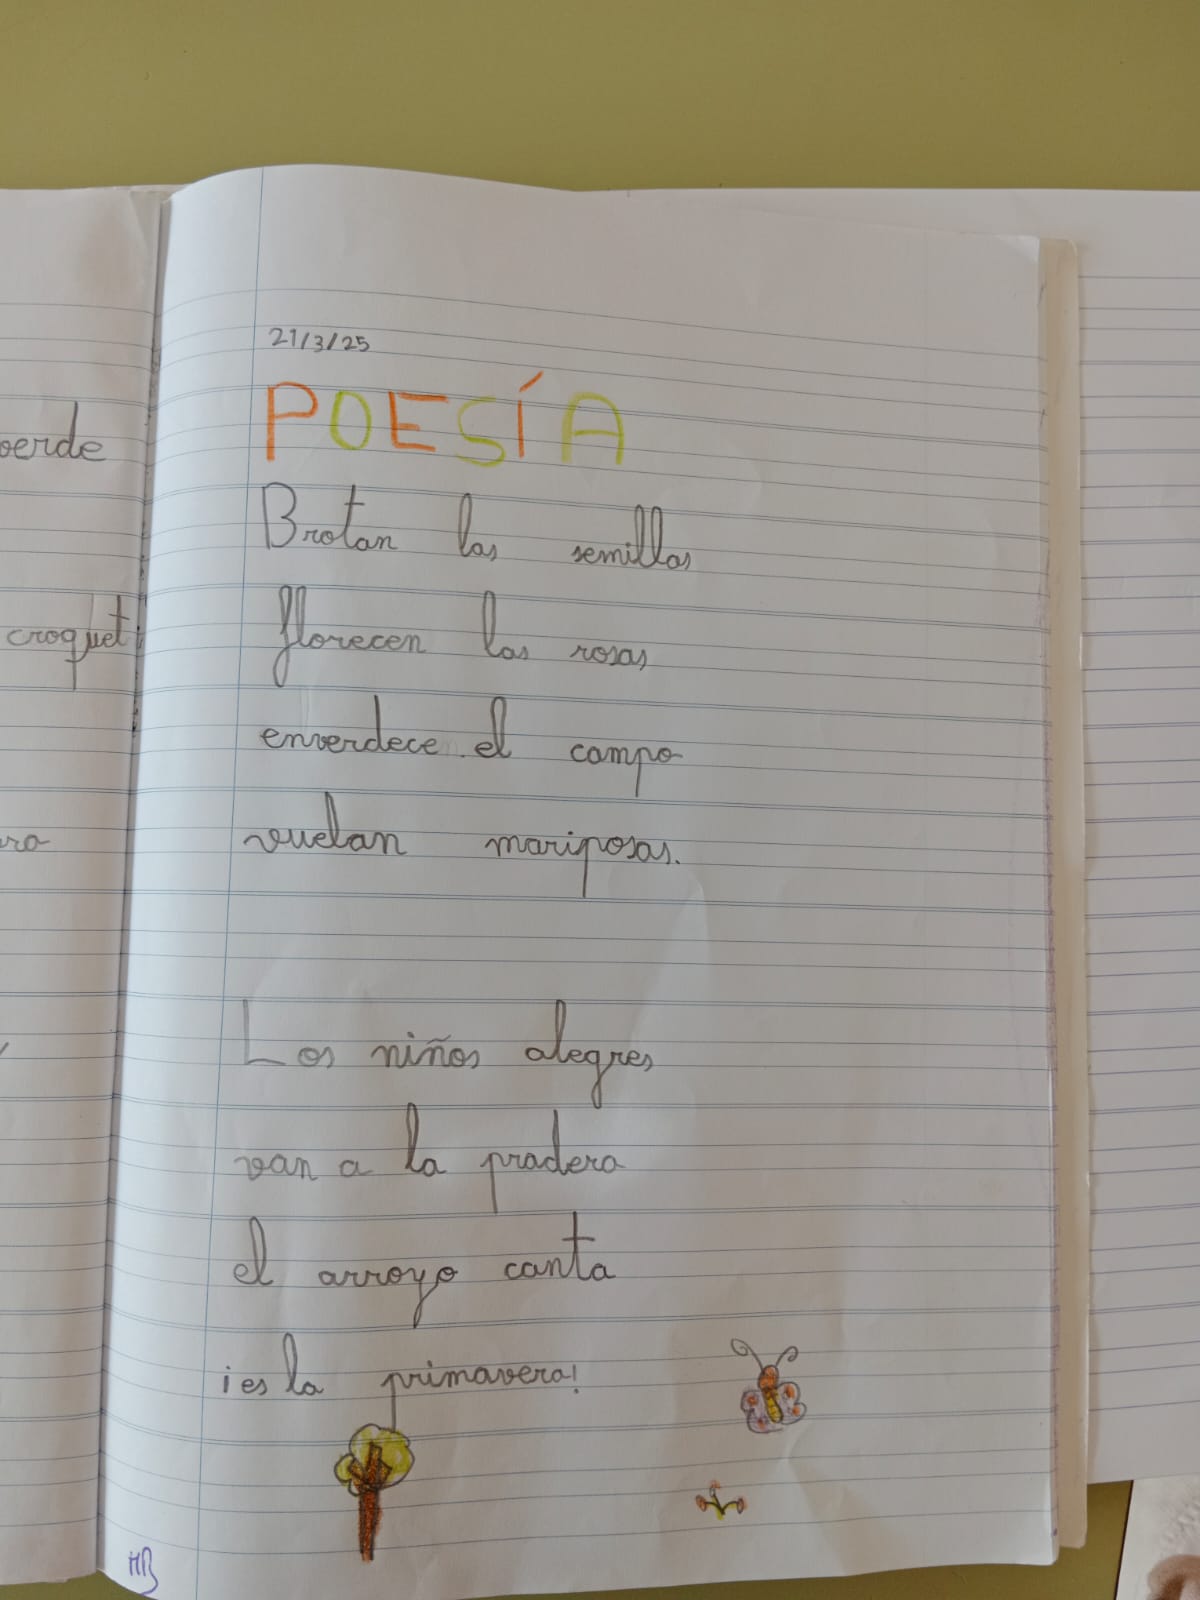 verde
croquet
21/3/25
POESÍA
Brotan las semillas
florecen las rosas
enverdece el campo
vuelan mariposas.
Los niños alegres
van a la pradera
el arroyo canta
¡es la primavera!